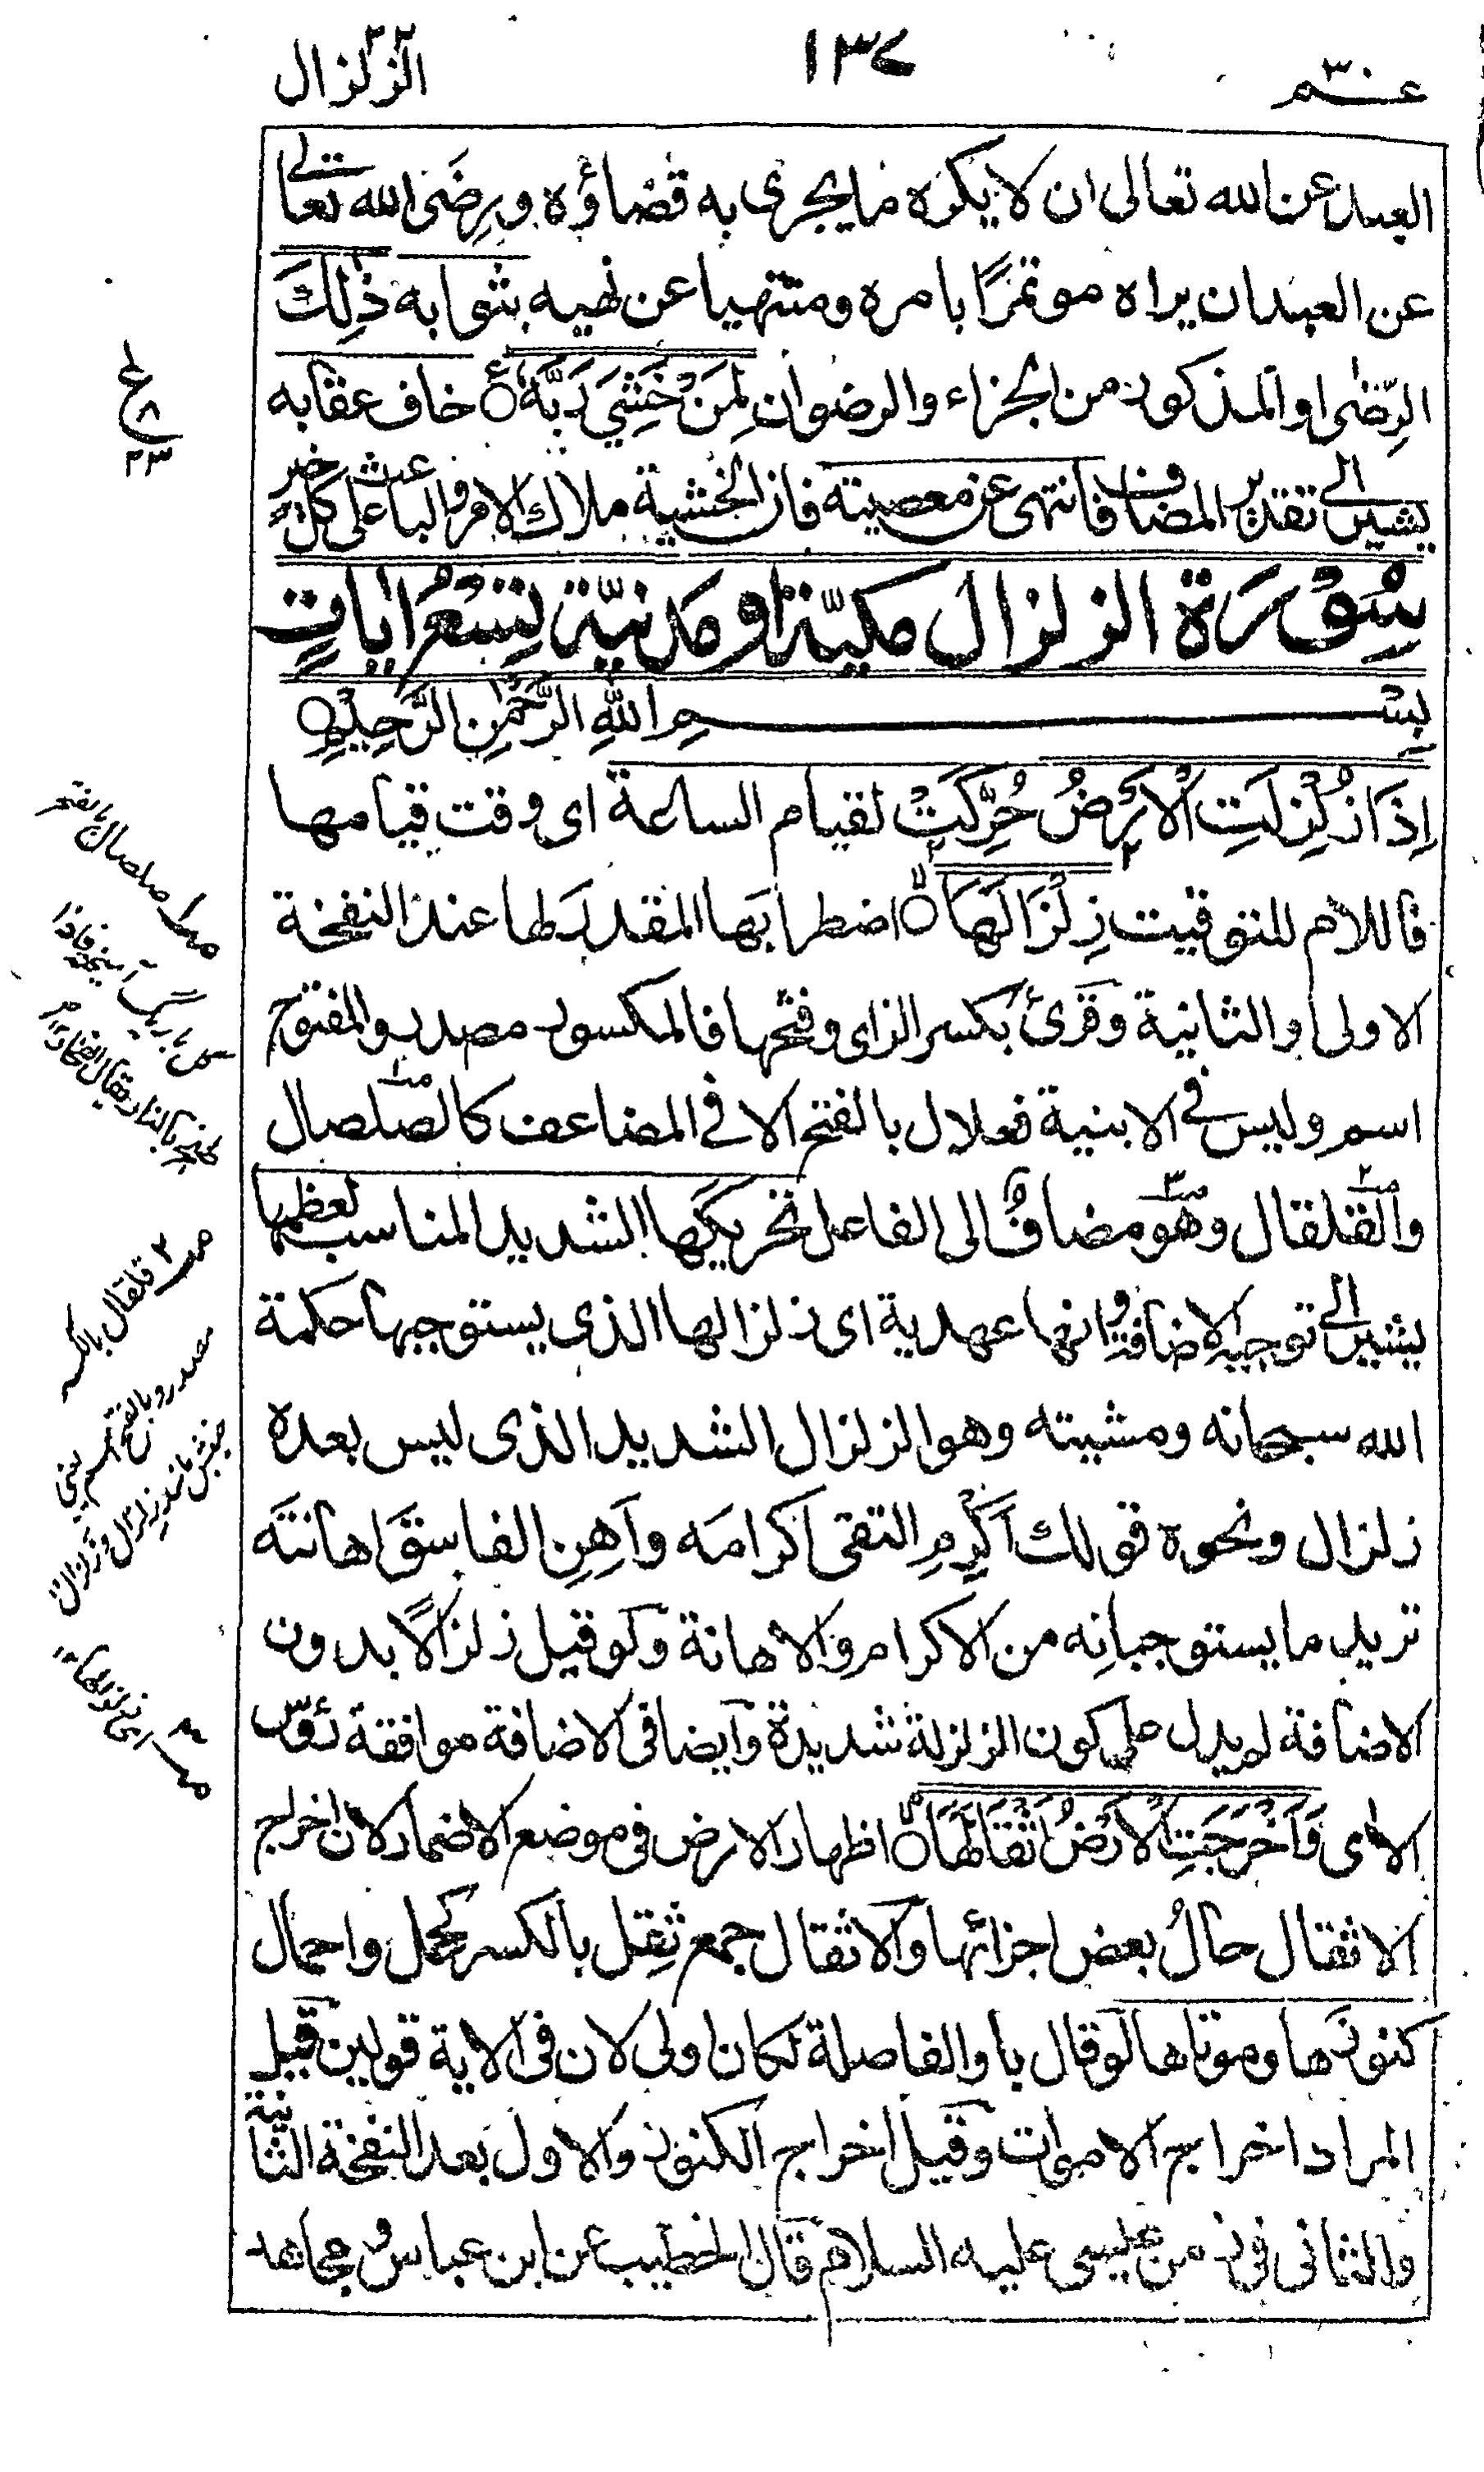 عـــم ٣٠
١٣٧
الزلزال
العبد عن الله تعالى ان لا يكره ما يجرى به قضاؤه ورِضَى الله تعالى
عن العبد ان يراه موتمرًا بامره ومنتهيا عن نهيه بثوابه ذٰلِكَ
الرِّضٰى او المذكور من الجزاء والرضوان لِمَنْ خَشِيَ رَبَّهٗ ۝ خاف عقابه
يشير الى تقدير المضاف فانتهى عن معصيته فان الخشية ملاك الامر والباعث على كل خير
سُوْرَةُ الزلزال مكيّة او مدنيّة تِسْعُ اٰيَاتٍ
بِسْــــمِ اللهِ الرَّحْمٰنِ الرَّحِيْمِ ۝
اِذَا زُلْزِلَتِ الْاَرْضُ حُرِّكَتْ لقيام الساعة اى وقت قيامها
فاللام للتوقيت زِلْزَالَهَا ۝ اضطرابَها المقدر لها عند النفخة
الاولى او الثانية وقرئ بكسر الزاى وفتحها فالمكسور مصدر والمفتوح
اسم وليس فى الابنية فعلال بالفتح الا فى المضاعف كالصلصال
والقلقال وهو مضافٌ الى الفاعل تحريكها الشديد المناسب لعظمها
يشير الى توجيه الاضافة وانها عهدية اى زلزالها الذى يستوجبها حكمة
الله سبحانه ومشيته وهو الزلزال الشديد الذى ليس بعده
زلزال ونحوه قولك اَكْرِمِ التقى اكرامَه واَهِنِ الفاسقَ اهانتَه
تريد ما يستوجبانِه من الاكرام والاهانة ولو قيل زلزالًا بدون
الاضافة لم يدل على كون الزلزلة شديدة وايضا فى الاضافة موافقة رؤس
الاٰى وَاَخْرَجَتِ الْاَرْضُ اَثْقَالَهَا ۝ اظهار الارض فى موضع الاضمار لان اخراج
الاثقال حالُ بعض اجزائها والاثقال جمع ثِقل بالكسر كحمل واحمال
كنوزَها وموتاها لو قال باو الفاصلة لكان اولى لان فى الاية قولين قيل
المراد اخراج الاموات وقيل اخراج الكنوز والاول بعد النفخة الثانية
والثانى فى زمن عيسى عليه السلام قال الخطيب عن ابن عباس ومجاهد
ع
٨
٢٣
صلصال بالفتح
قلقال بالكسر
مصدر وبالفتح اسم